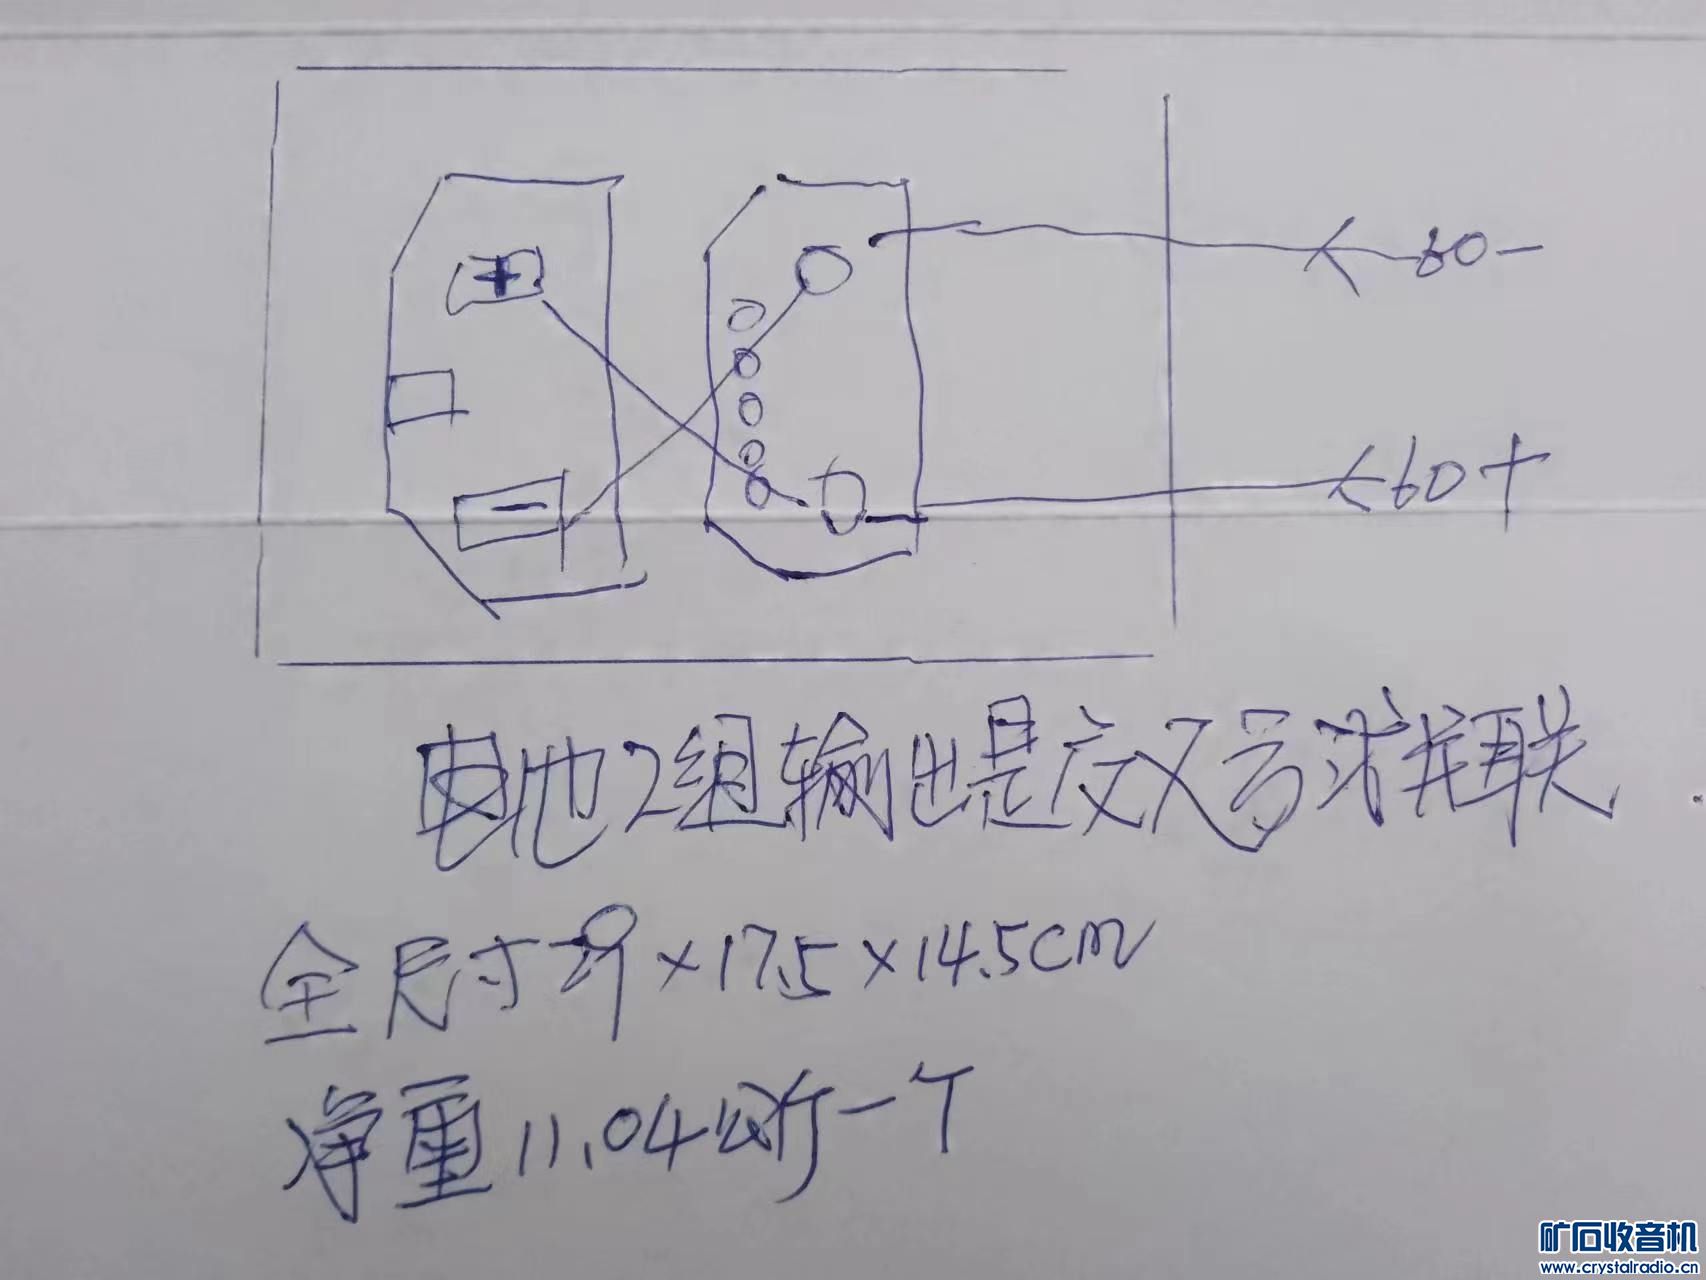 +
60-
-
60+
电池2组输出是交叉号求并联
全尺寸 29×17.5×14.5cm
净重11.04公斤一个
矿石收音机
www.crystalradio.cn